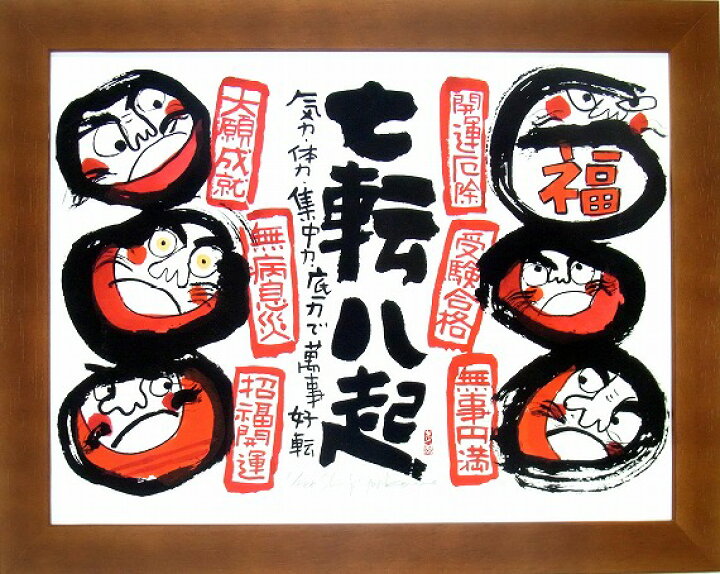 開運厄除
受験合格
無事円満
福
七転八起
気力・体力・集中力・底力で萬事好転
大願成就
無病息災
招福開運